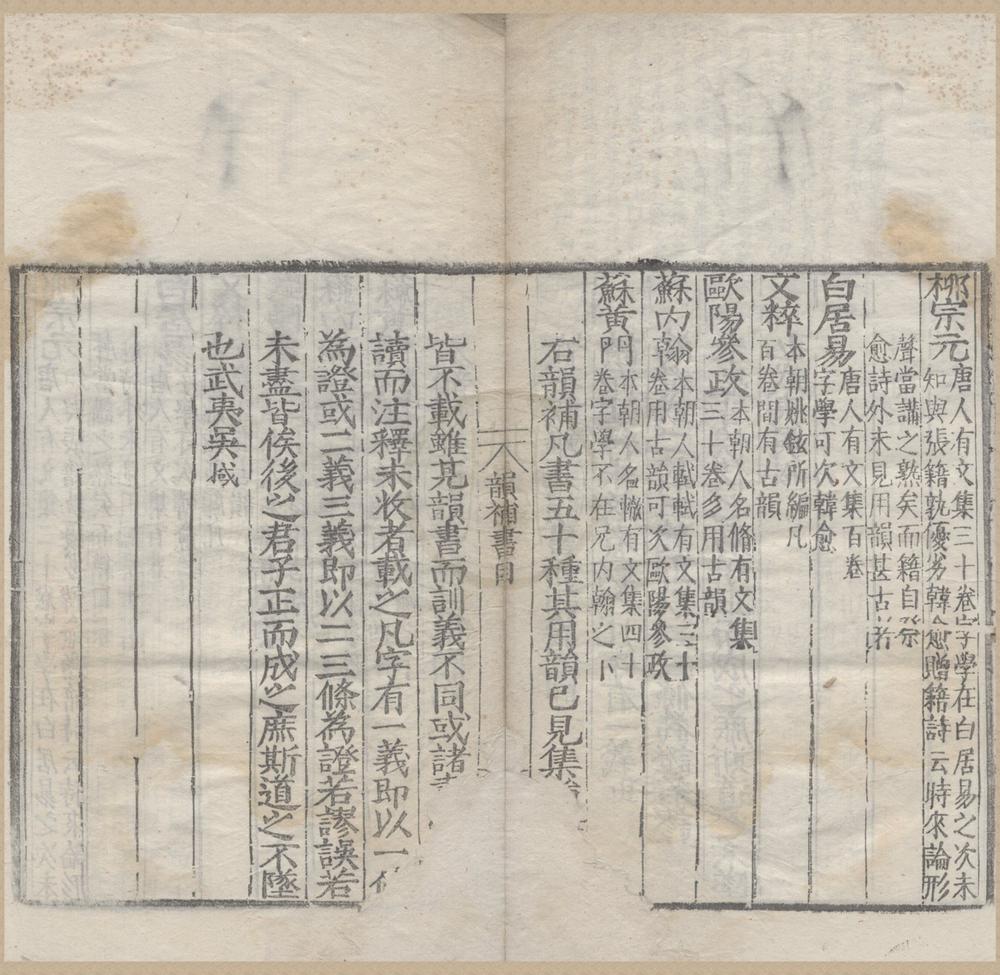 柳宗元唐人有文集三十卷字學在白居易之次未
知與張籍孰優劣韓愈贈籍詩云時來論形
聲當講之熟矣而籍自祭
愈詩外未見用韻甚古者
白居易唐人有文集百卷
字學可次韓愈
文粹本朝姚鉉所編凡
百卷間有古韻
歐陽參政本朝人名脩有文集
三十卷多用古韻
蘇內翰本朝人軾軾有文集三十
卷用古韻可次歐陽參政
蘇黃門本朝人名轍有文集四十
卷字學不在兄內翰之下
右韻補凡書五十種其用韻已見集
韻補書目
皆不載雖見韻書而訓義不同或諸
讀而注釋未收者載之凡字有一義即以一
為證或二義三義即以二三條為證若謬誤若
未盡皆俟後之君子正而成之庶斯道之不墜
也武夷吳棫